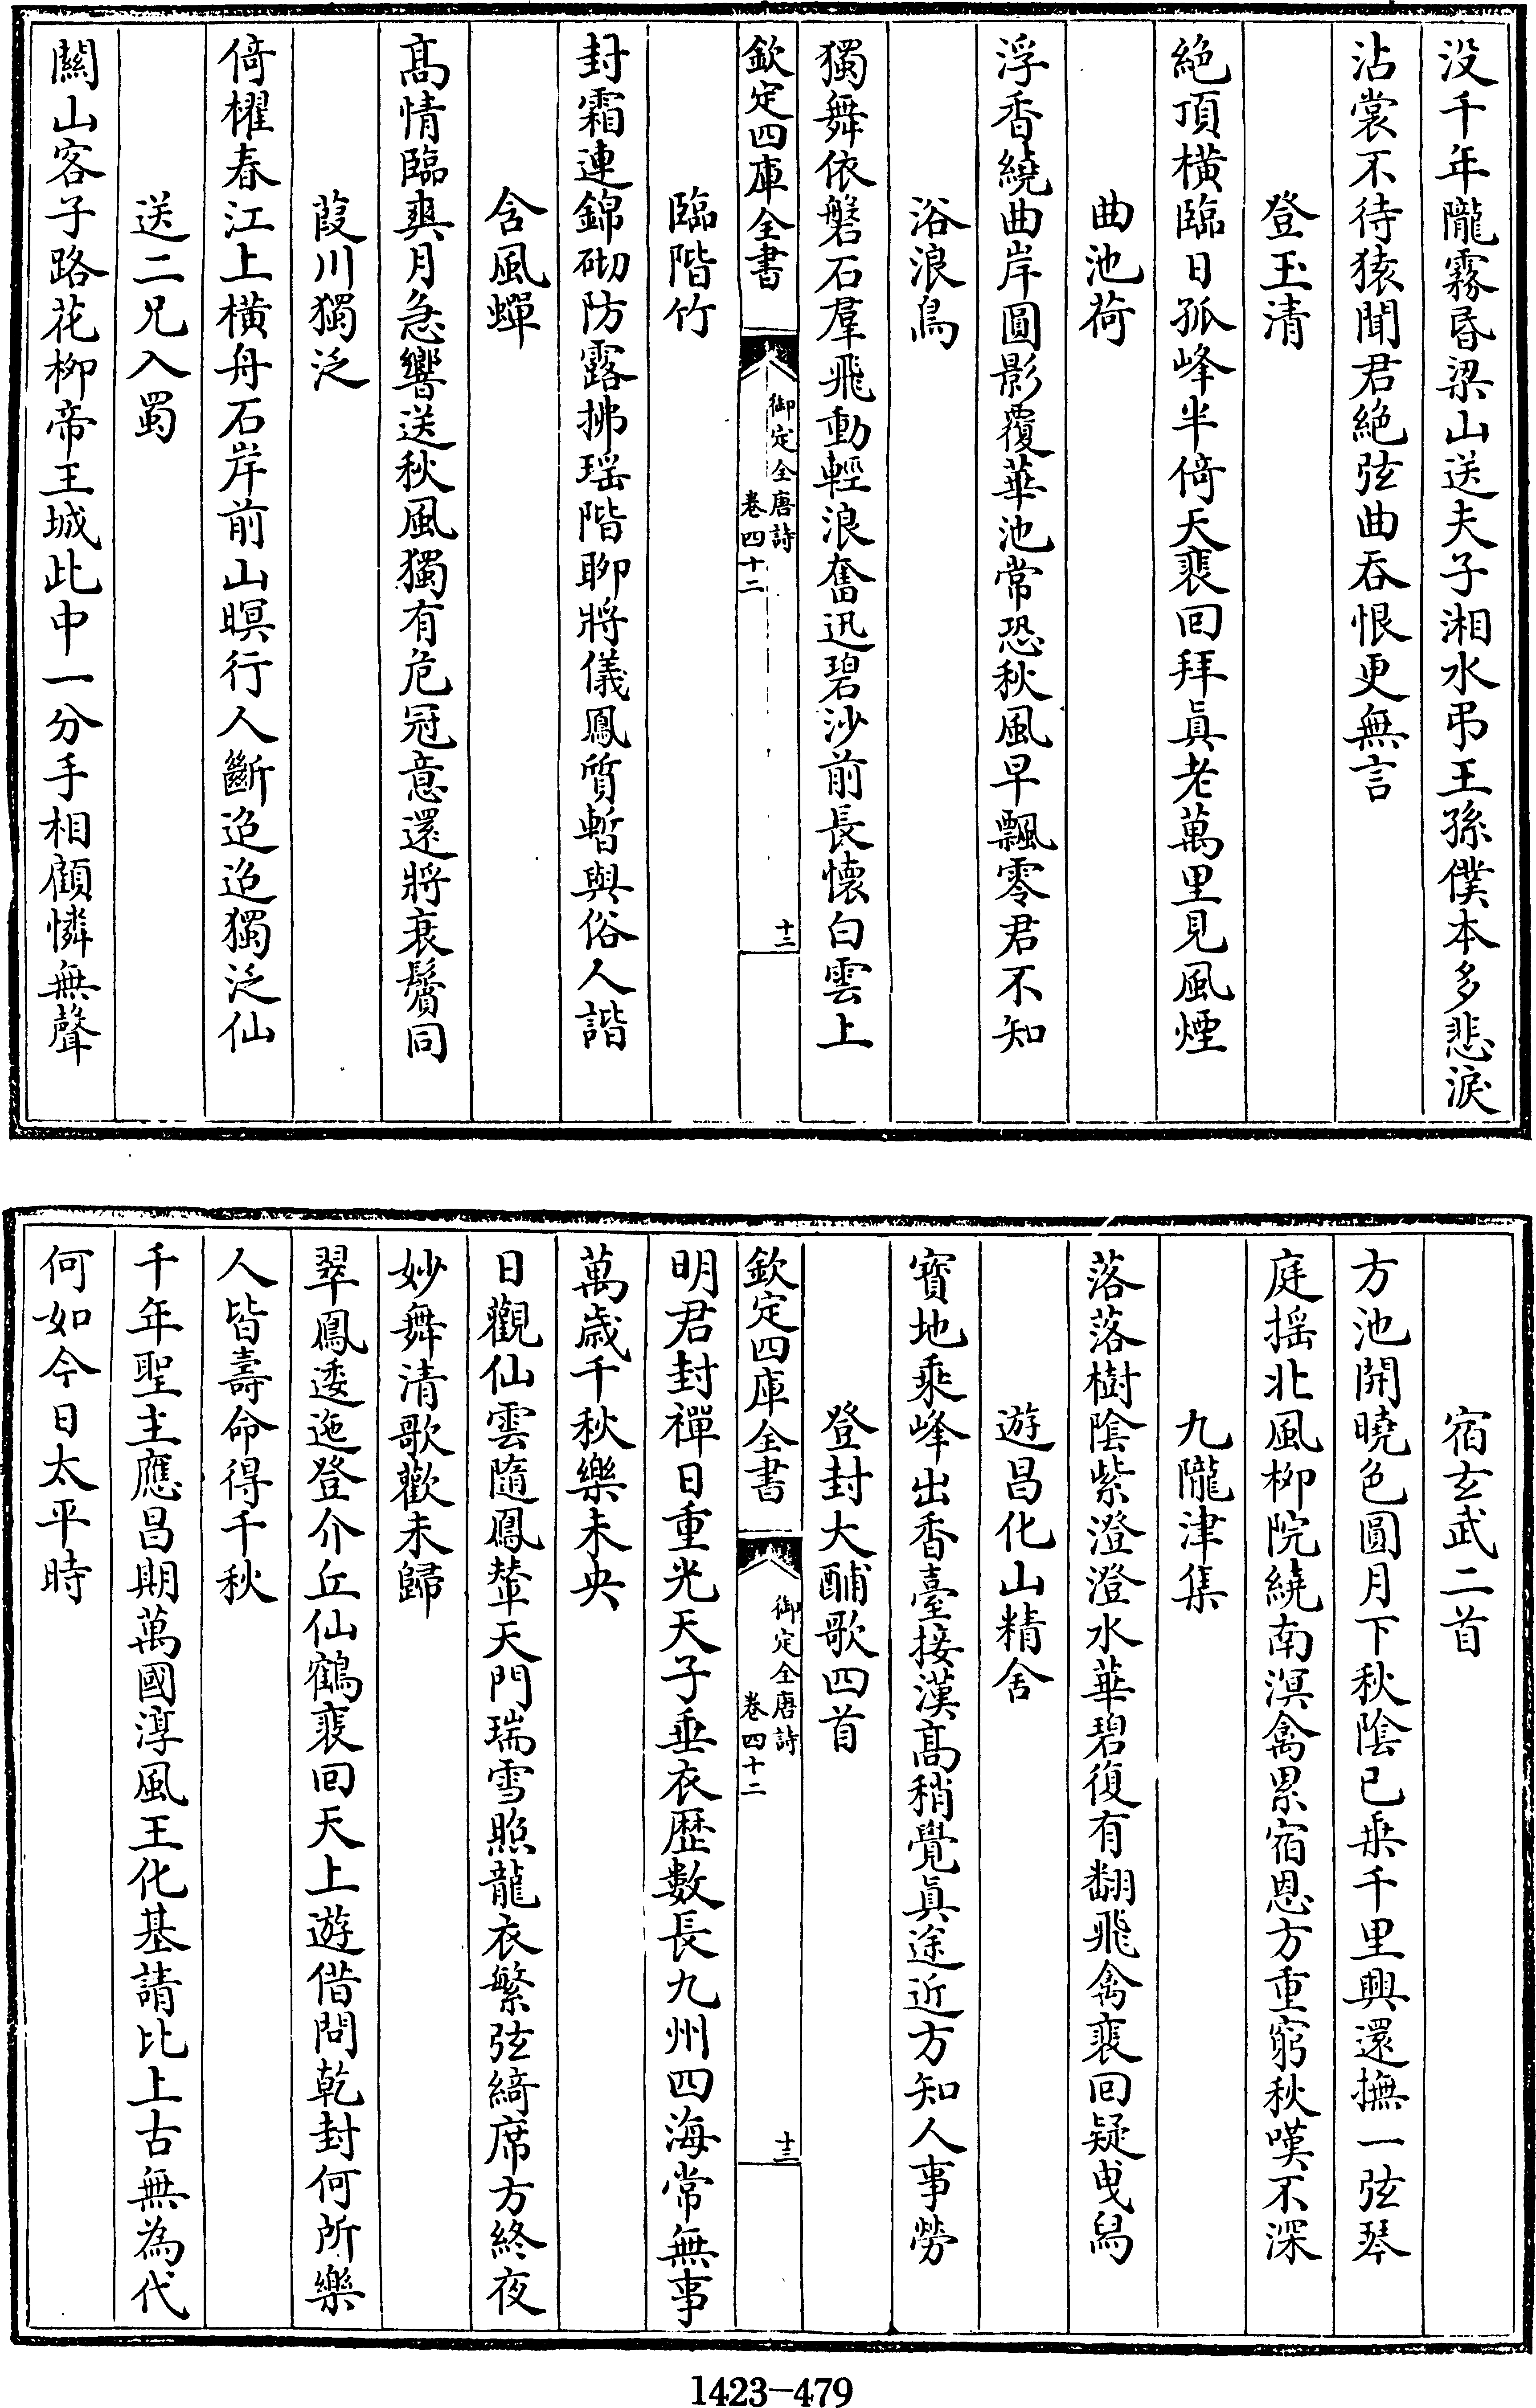 没千年隴霧昏梁山送夫子湘水弔王孫僕本多悲淚
沾裳不待猿聞君絶弦曲吞恨更無言
登玉清
絶頂橫臨日孤峰半倚天裴回拜眞老萬里見風煙
曲池荷
浮香繞曲岸圓影覆華池常恐秋風早飄零君不知
浴浪鳥
獨舞依磐石羣飛動輕浪奮迅碧沙前長懐白雲上
欽定四庫全書
御定全唐詩
卷四十二
十二
臨階竹
封霜連錦砌防露拂瑶階聊將儀鳳質暫與俗人諧
含風蟬
髙情臨爽月急響送秋風獨有危冠意還將衰鬢同
葭川獨泛
倚櫂春江上橫舟石岸前山暝行人斷迢迢獨泛仙
送二兄入蜀
關山客子路花柳帝王城此中一分手相顧憐無聲
宿玄武二首
方池開曉色圓月下秋陰已乘千里興還撫一弦琴
庭摇北風柳院繞南溟禽累宿恩方重窮秋嘆不深
九隴津集
落落樹陰紫澄澄水華碧復有翻飛禽裴回疑曵舄
遊昌化山精舍
寳地乘峰出香臺接漢髙稍覺眞途近方知人事勞
登封大酺歌四首
欽定四庫全書
御定全唐詩
卷四十二
十三
明君封禪日重光天子垂衣歴數長九州四海常無事
萬歲千秋樂未央
日觀仙雲隨鳳輦天門瑞雪照龍衣繁弦綺席方終夜
妙舞清歌歡未歸
翠鳳逶迤登介丘仙鶴裴回天上遊借問乾封何所樂
人皆壽命得千秋
千年聖主應昌期萬國淳風王化基請比上古無為代
何如今日太平時
1423-479